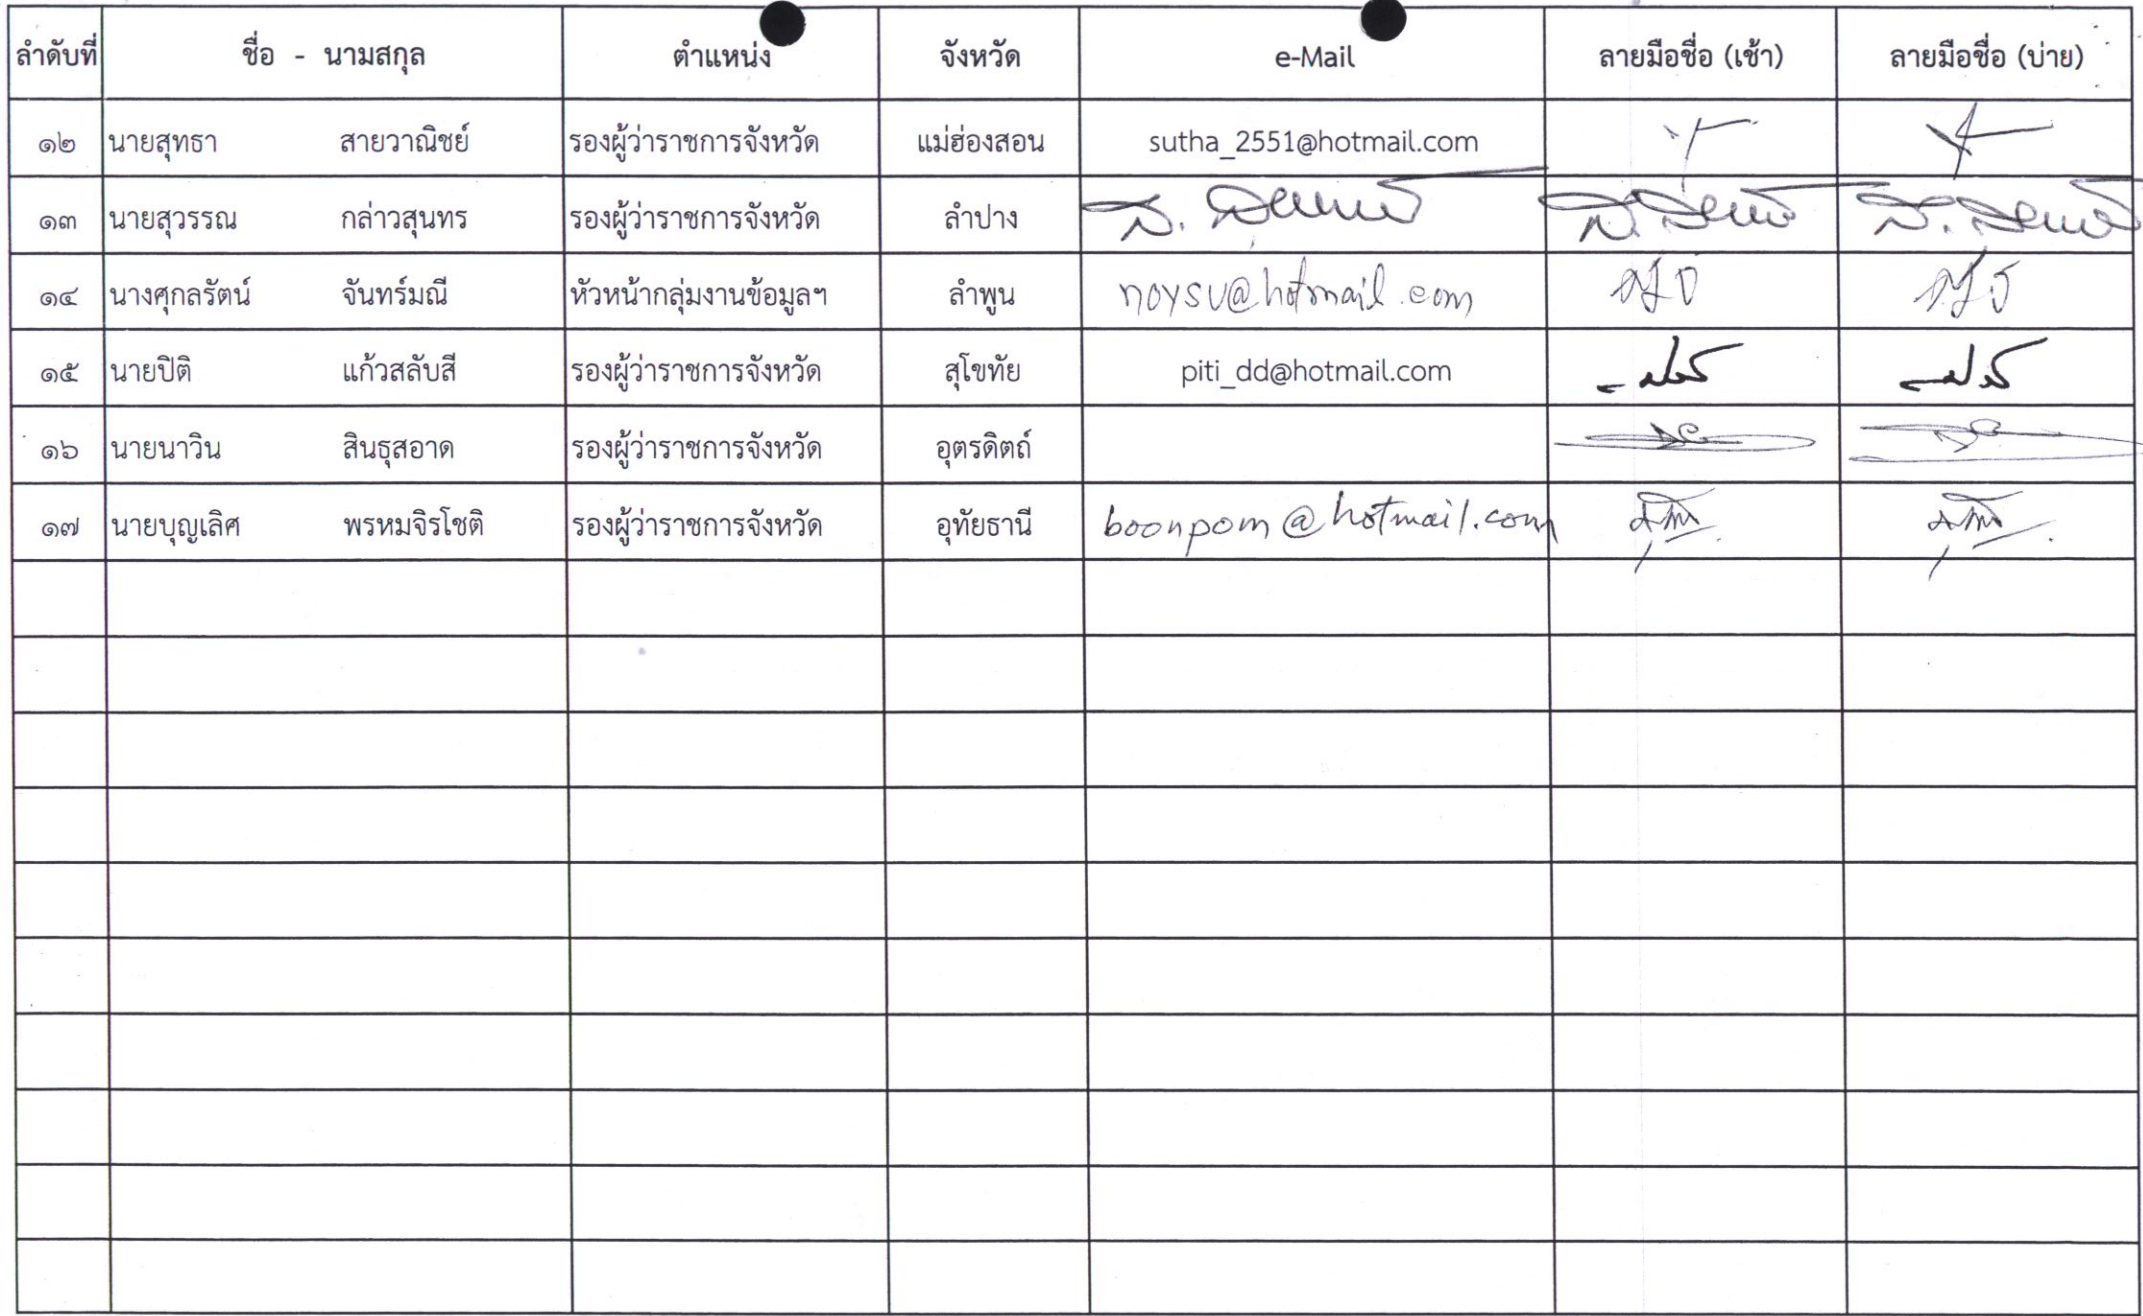 ลำดับที่ ชื่อ - นามสกุล ตำแหน่ง จังหวัด e-Mail ลายมือชื่อ (เช้า) ลายมือชื่อ (บ่าย)
๑๒ นายสุทธา สายวาณิชย์ รองผู้ว่าราชการจังหวัด แม่ฮ่องสอน sutha_2551@hotmail.com
๑๓ นายสุวรรณ กล่าวสุนทร รองผู้ว่าราชการจังหวัด ลำปาง
๑๔ นางศุกลรัตน์ จันทร์มณี หัวหน้ากลุ่มงานข้อมูลฯ ลำพูน noysu@hotmail.com
๑๕ นายปิติ แก้วสลับสี รองผู้ว่าราชการจังหวัด สุโขทัย piti_dd@hotmail.com
๑๖ นายนาวิน สินธุสอาด รองผู้ว่าราชการจังหวัด อุตรดิตถ์
๑๗ นายบุญเลิศ พรหมจิรโชติ รองผู้ว่าราชการจังหวัด อุทัยธานี boonpom@hotmail.com